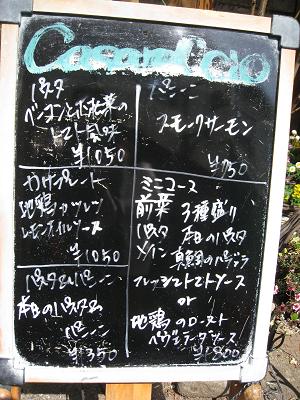 パスタ
ベーコンと小松菜の
トマト風味
¥1050
パニーニ
スモークサーモン
¥750
地鶏カツレツ
レモンオイルソース
¥1050
ミニコース
前菜 3種盛り
パスタ 本日のパスタ
メイン 真鯛のパデラ
フレッシュトマトソース
or
地鶏のロースト
ソース
¥1800
パスタ&パニーニ
本日のパスタ&
パニーニ
¥1350